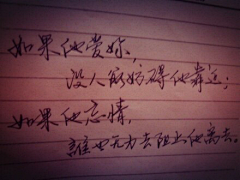 如果他爱你，
没人能妨碍他靠近；
如果他忘情，
誰也无力去阻止他离去。